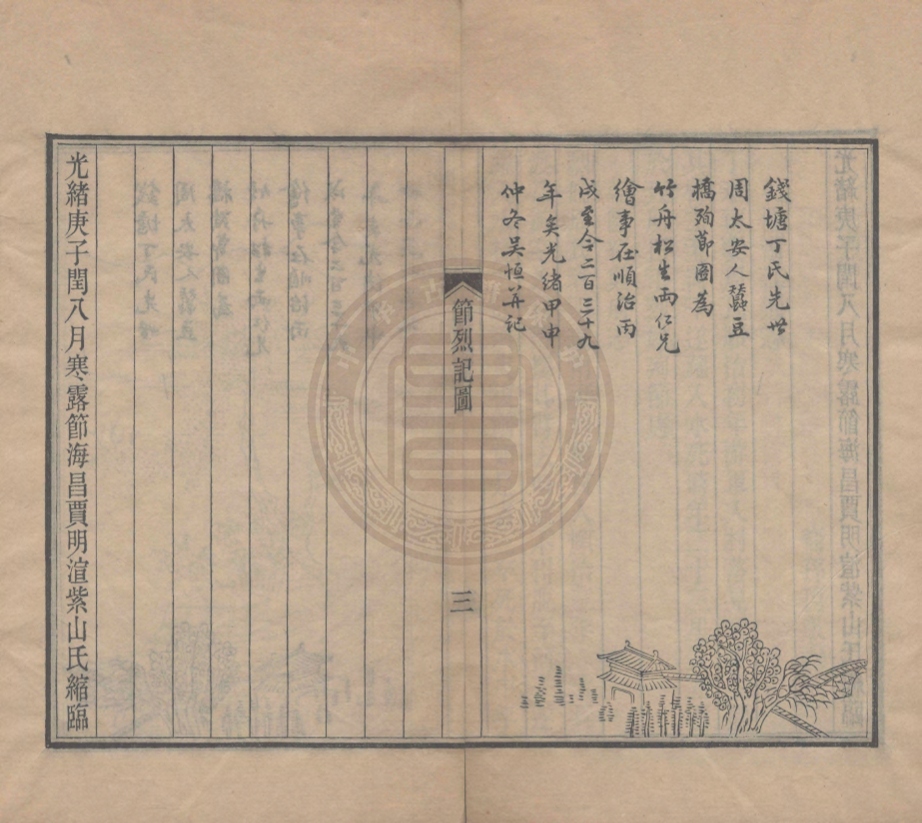 錢塘丁氏先世
周太安人蠶豆
橋殉節圖爲
竹舟松生兩仁兄
繪事在順治丙
戌至今二百三十九
年矣光緒甲申
仲冬吳恒并記
節烈記圖
三
光緒庚子閏八月寒露節海昌賈明渲紫山氏縮臨